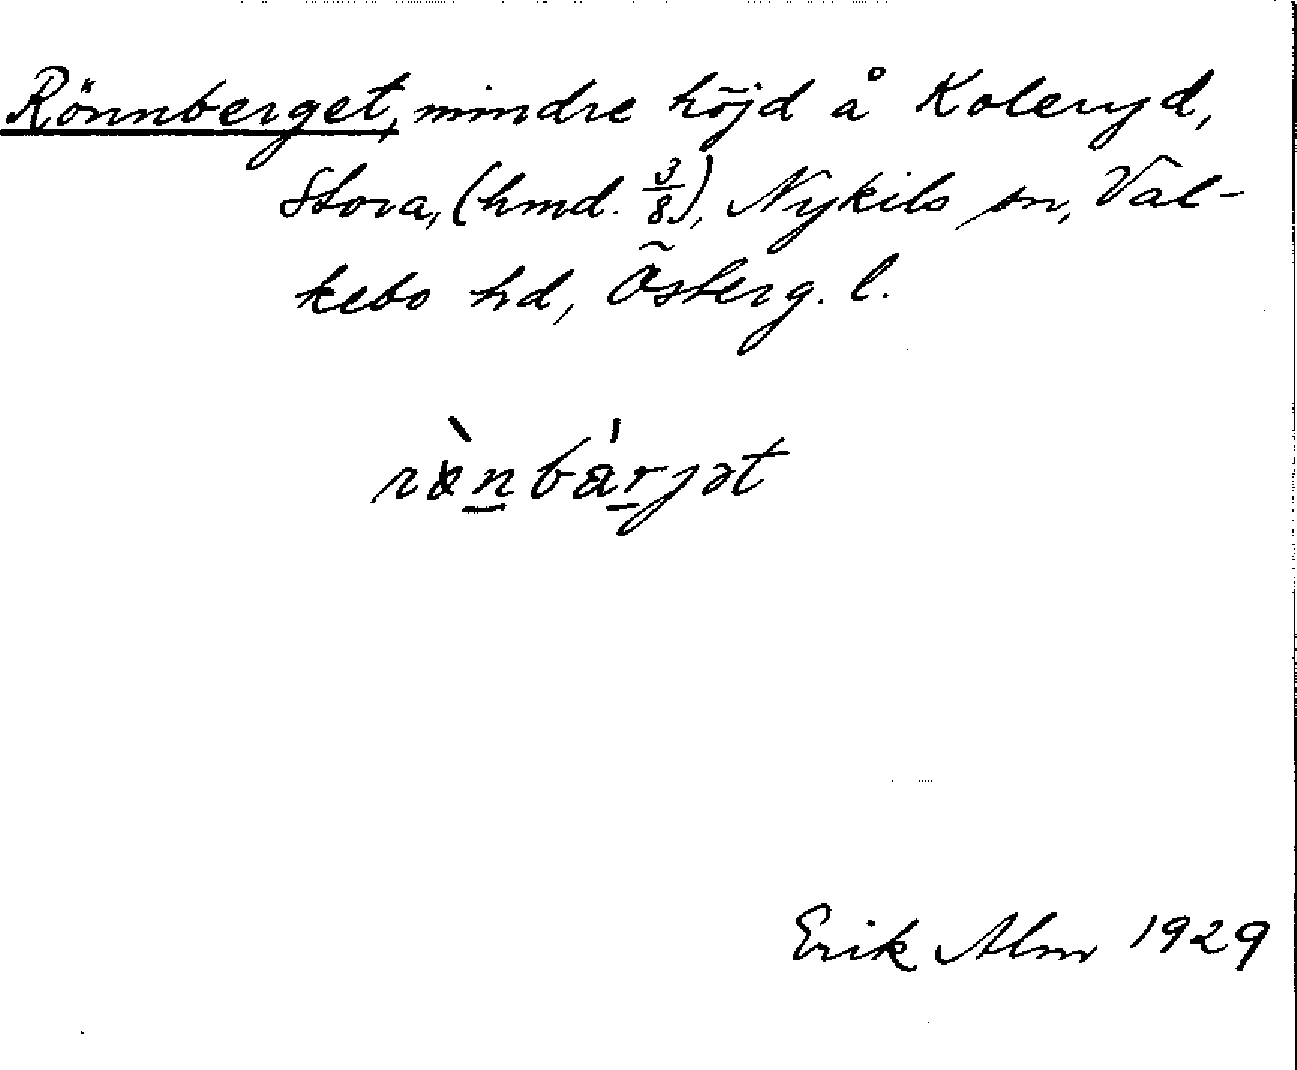 Rönnberget, mindre höjd å Koleryd,
Stora, (hmd. 3/8), Nykils sn, Val-
kebo hd, Österg. l.
Erik Alm 1929